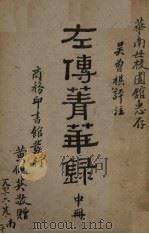 華南女校圖舘惠存
吳曾祺評注
左傳菁華錄
中冊
商務印書館
敬贈